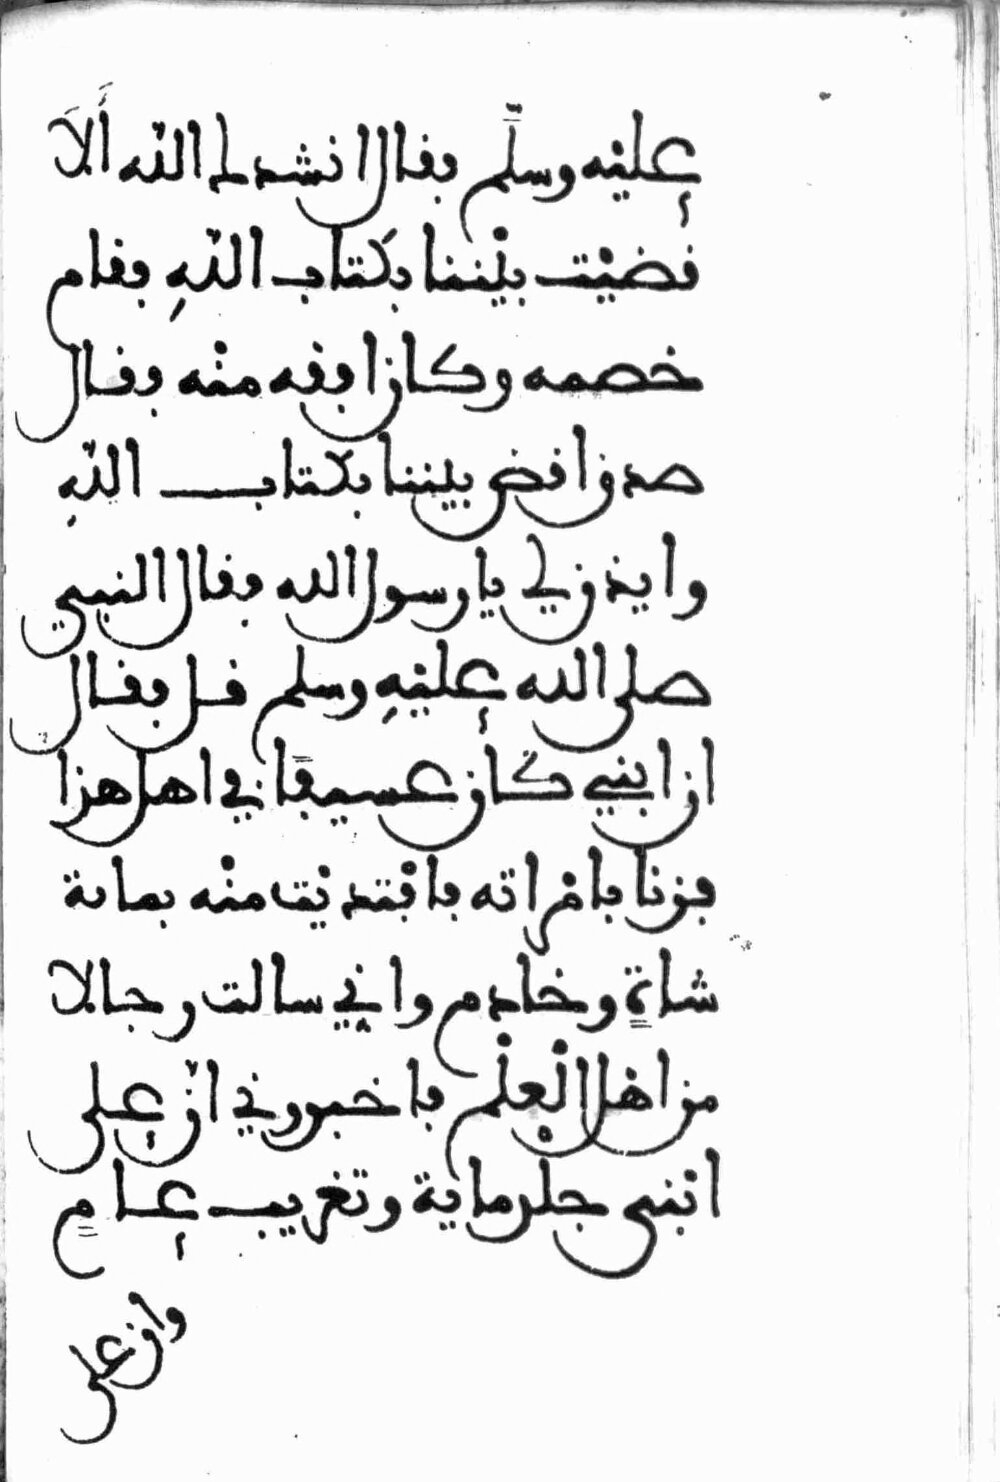 عليه وسلم فقال انشدك الله ألا
قضيت بيننا بكتاب الله فقام
خصمه وكان افقه منه فقال
صدق اقض بيننا بكتاب الله
وايذن لي يا رسول الله فقال النبي
صلى الله عليه وسلم قل فقال
ان ابني كان عسيفا في اهل هذا
فزنا بامراته فافتديت منه بماىة
شاة وخادم واني سالت رجالا
من اهل العلم فاخبروني ان على
ابني جلد ماية وتغريب عام
وان على